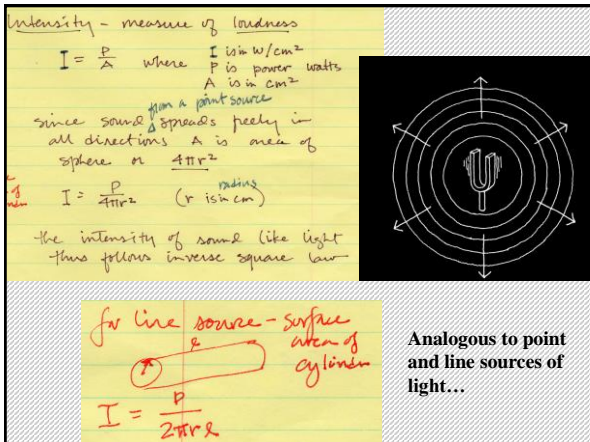 Intensity - measure of loudness
I = P/A where I is in W/cm²
P is power watts
A is in cm²
from a point source
since sound spreads freely in
all directions A is area of
sphere or 4πr²
I = P/4πr² (r is in cm)
radius
the intensity of sound like light
thus follows inverse square law
for line source - surface
area of
cylinder
l
r
I = P/2πrl
Analogous to point
and line sources of
light…